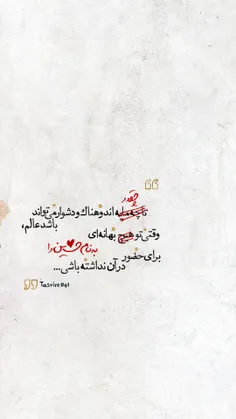 چقدر
تا چه مایه اندوهناک و دشوار می‌تواند
باشد عالم،
وقتی تو هیچ بهانه‌ای
به نام حسین را
برای حضور
در آن نداشته باشی...
Tasvire Del